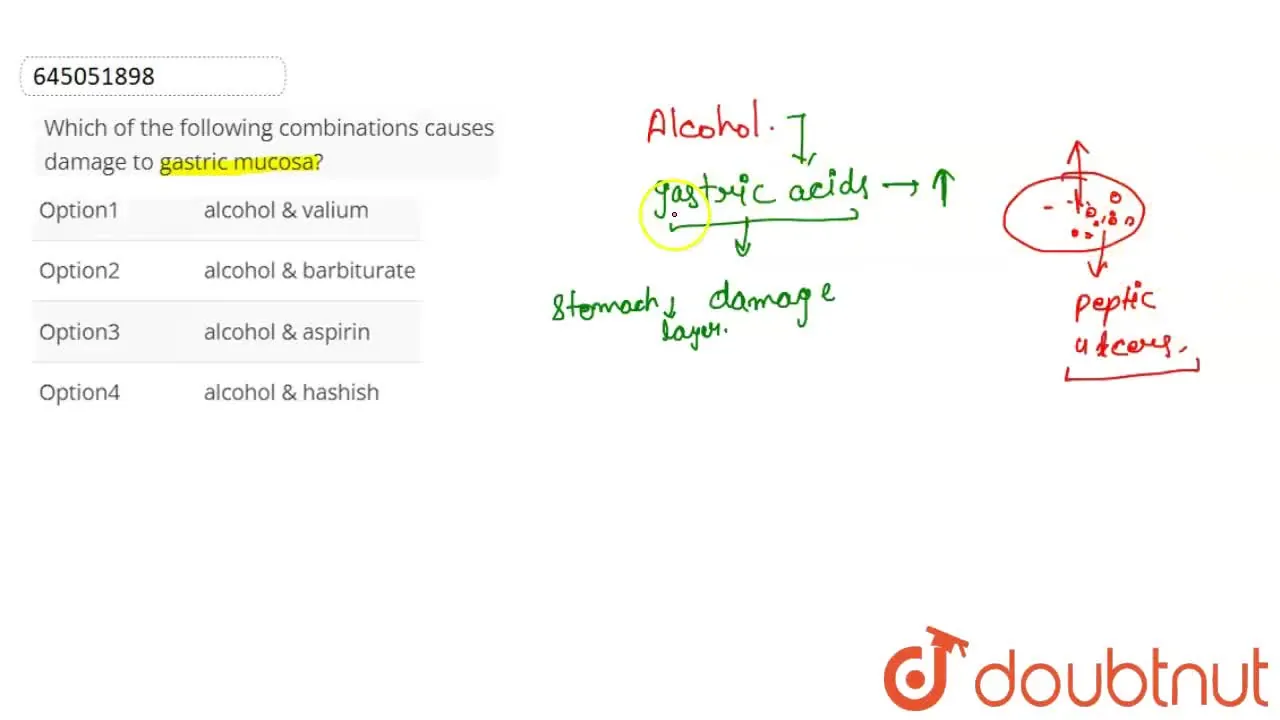 645051898
Which of the following combinations causes
damage to gastric mucosa?
Option1 alcohol & valium
Option2 alcohol & barbiturate
Option3 alcohol & aspirin
Option4 alcohol & hashish
Alcohol.
gastric acids → ↑
Stomach damage
layer.
peptic
ulcers.
doubtnut